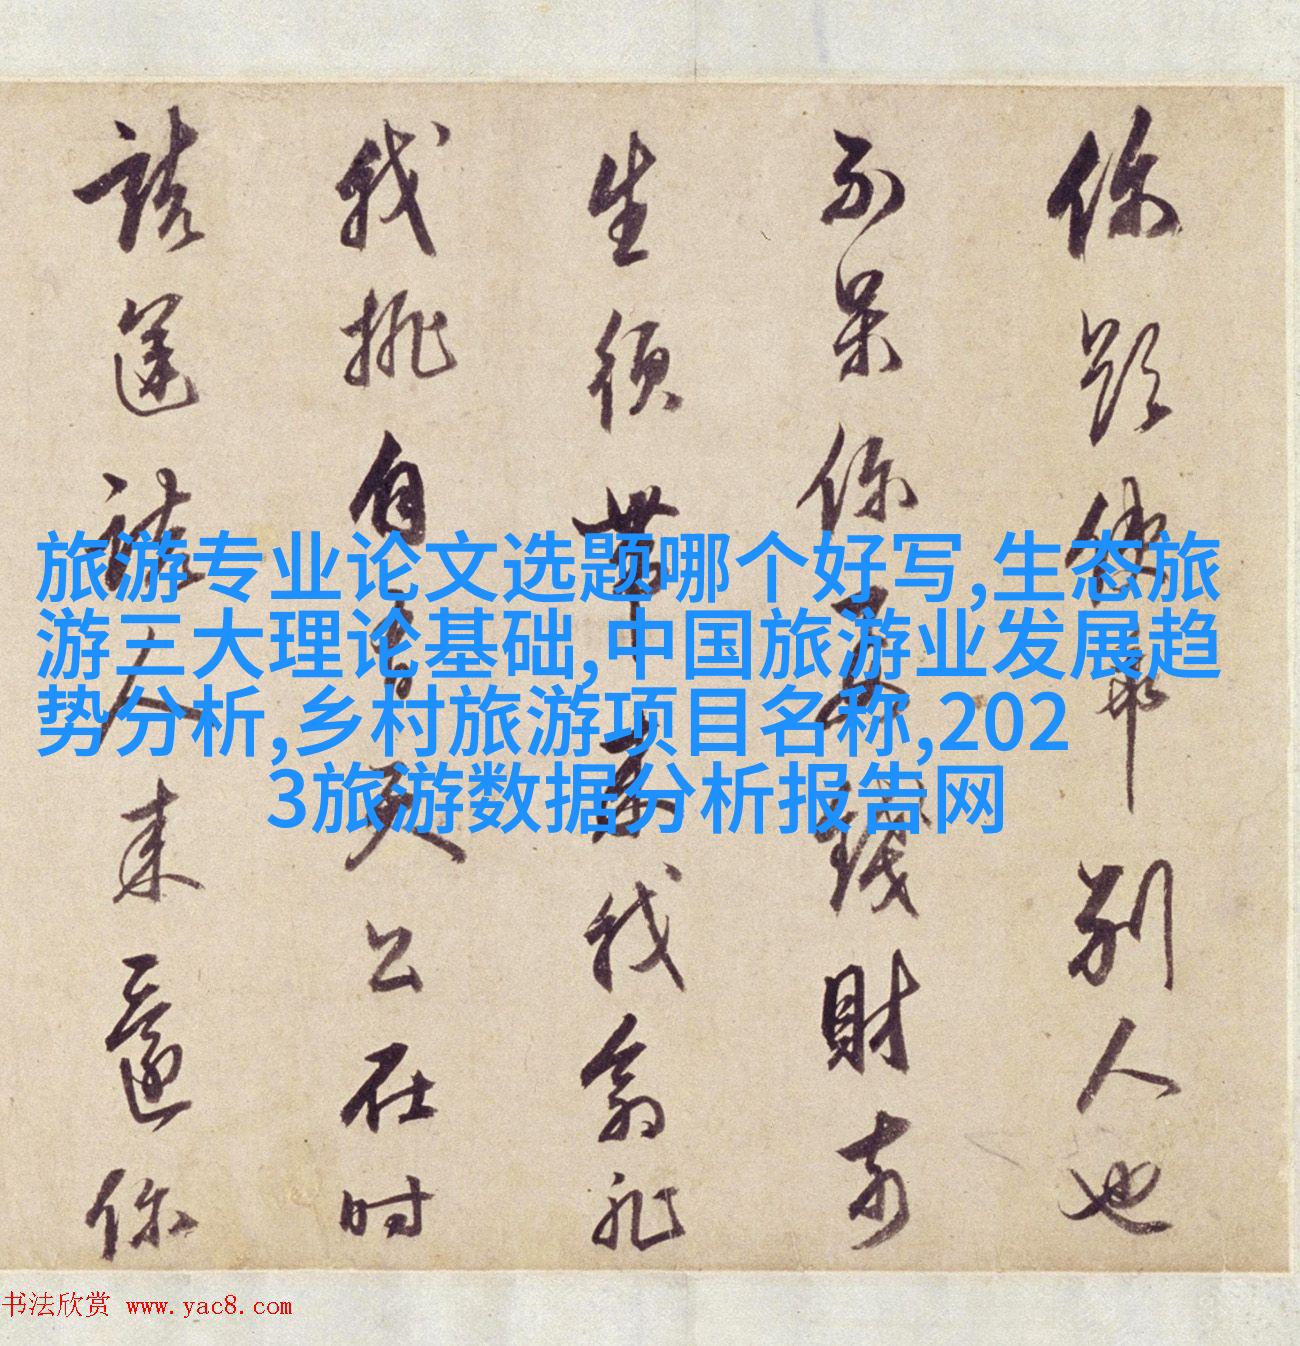 旅游专业论文选题哪个好写,生态旅
游三大理论基础,中国旅游业发展趋
势分析,乡村旅游项目名称,202
3旅游数据分析报告网
你 别人也
不呆你要錢財
生須带 我
我挑自有天公在时
人来還你
书法欣赏 www.yac8.com